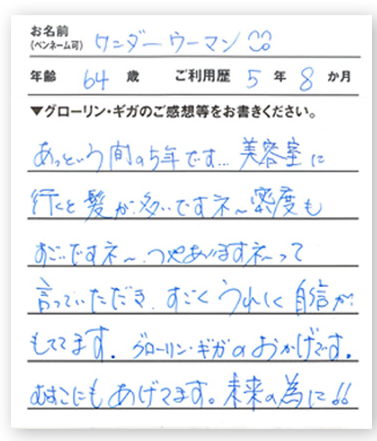 お名前
(ペンネーム可) ワンダーウーマン
年齢 64 歳 ご利用歴 5 年 8 か月
▼グローリン・ギガのご感想等をお書きください。
あっという間の5年です… 美容室に
行くと髪が多いですネ〜密度も
すごいですネ〜、つやありますネ〜って
言っていただき、すごくうれしく自信が
もててます。グローリン・ギガのおかげです。
むすこにもあげてます。未来の為に!!